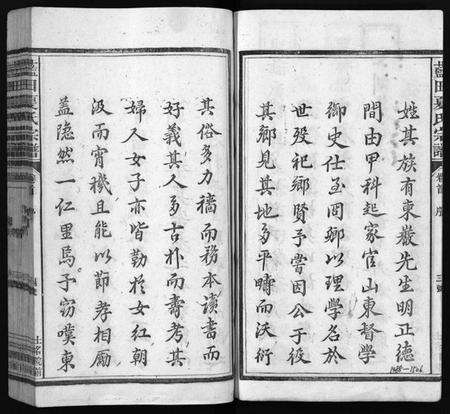 姓其族有東巖先生明正德
間由甲科起家官山東督學
御史仕至冏卿以理學名於
世歿祀鄉賢予嘗因公于役
其鄉見其地多平疇而沃衍
其俗多力穡而務本讀書而
好義其人多古朴而壽考其
婦人女子亦皆勤於女紅朝
汲而宵機且能以節孝相勵
藎隐然一仁里焉予窃嘆東
藍田夏氏宗譜
卷首
序
藍田夏氏宗譜
1488-1506